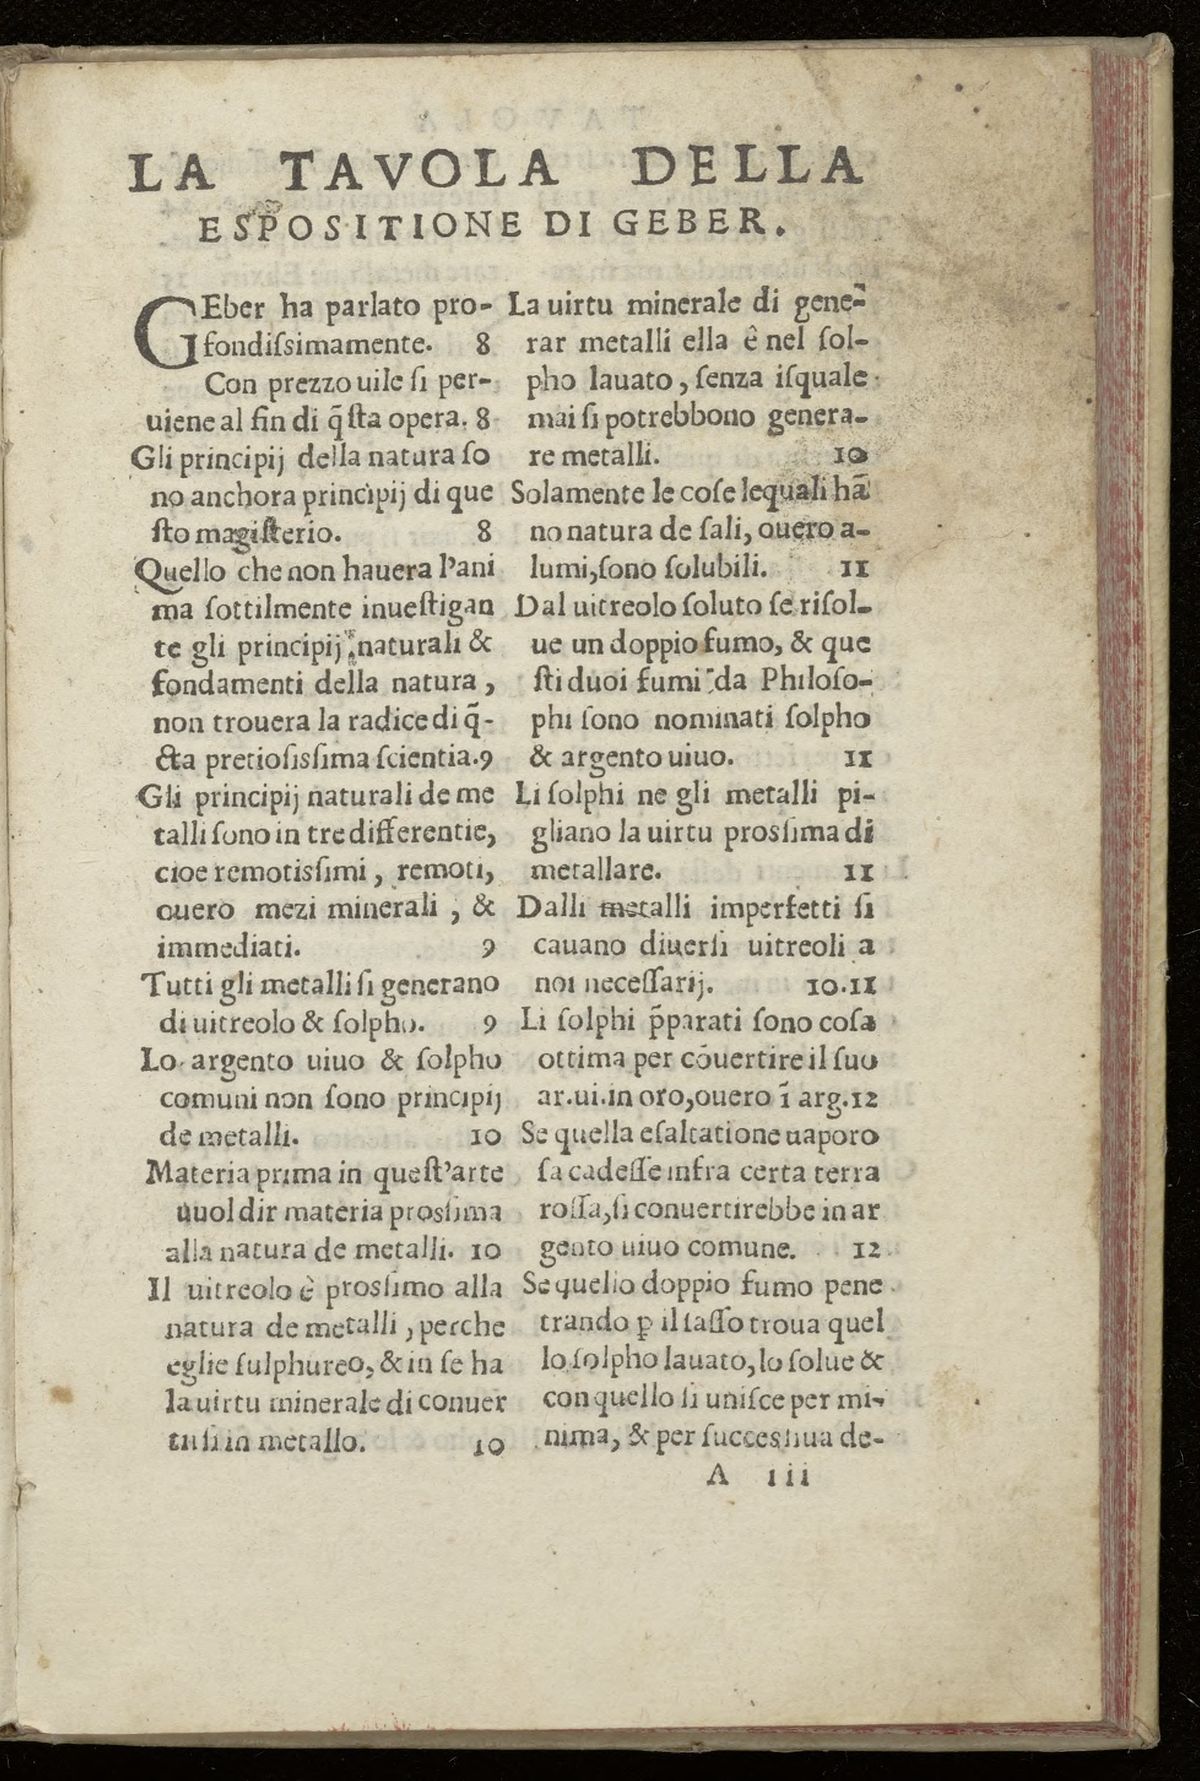 LA TAVOLA DELLA
ESPOSITIONE DI GEBER.
GEber ha parlato pro-
fondiſsimamente. 8
Con prezzo uile ſi per-
uiene al fin di q̃ſta opera. 8
Gli principij della natura ſo
no anchora principij di que
ſto magiſterio. 8
Quello che non hauera l'ani
ma ſottilmente inueſtigan
te gli principij naturali &
fondamenti della natura,
non trouera la radice di q̃-
cta pretioſiſsima ſcientia. 9
Gli principij naturali de me
talli ſono in tre differentie,
cioe remotiſsimi, remoti,
ouero mezi minerali, &
immediati. 9
Tutti gli metalli ſi generano
di uitreolo & ſolpho. 9
Lo argento uiuo & ſolpho
comuni non ſono principij
de metalli. 10
Materia prima in queſt'arte
uuol dir materia proſsima
alla natura de metalli. 10
Il uitreolo è proſsimo alla
natura de metalli, perche
eglie ſulphureo, & in ſe ha
la uirtu minerale di conuer
tirſi in metallo. 10
La uirtu minerale di gene-
rar metalli ella ê nel ſol-
pho lauato, ſenza iſquale
mai ſi potrebbono genera-
re metalli. 10
Solamente le coſe lequali hã
no natura de ſali, ouero a-
lumi, ſono ſolubili. 11
Dal uitreolo ſoluto ſe riſol-
ue un doppio fumo, & que
ſti duoi fumi da Philoſo-
phi ſono nominati ſolpho
& argento uiuo. 11
Li ſolphi ne gli metalli pi-
gliano la uirtu proſsima di
metallare. 11
Dalli metalli imperfetti ſi
cauano diuerſi uitreoli a
noi neceſſarij. 10.11
Li ſolphi p̃parati ſono coſa
ottima per cõuertire il ſuo
ar.ui.in oro, ouero ĩ arg. 12
Se quella eſaltatione uaporo
ſa cadeſſe infra certa terra
roſſa, ſi conuertirebbe in ar
gento uiuo comune. 12
Se quello doppio fumo pene
trando ꝑ il ſaſſo troua quel
lo ſolpho lauato, lo ſolue &
con quello ſi uniſce per mi-
nima, & per ſucceſsiua de-
A iii